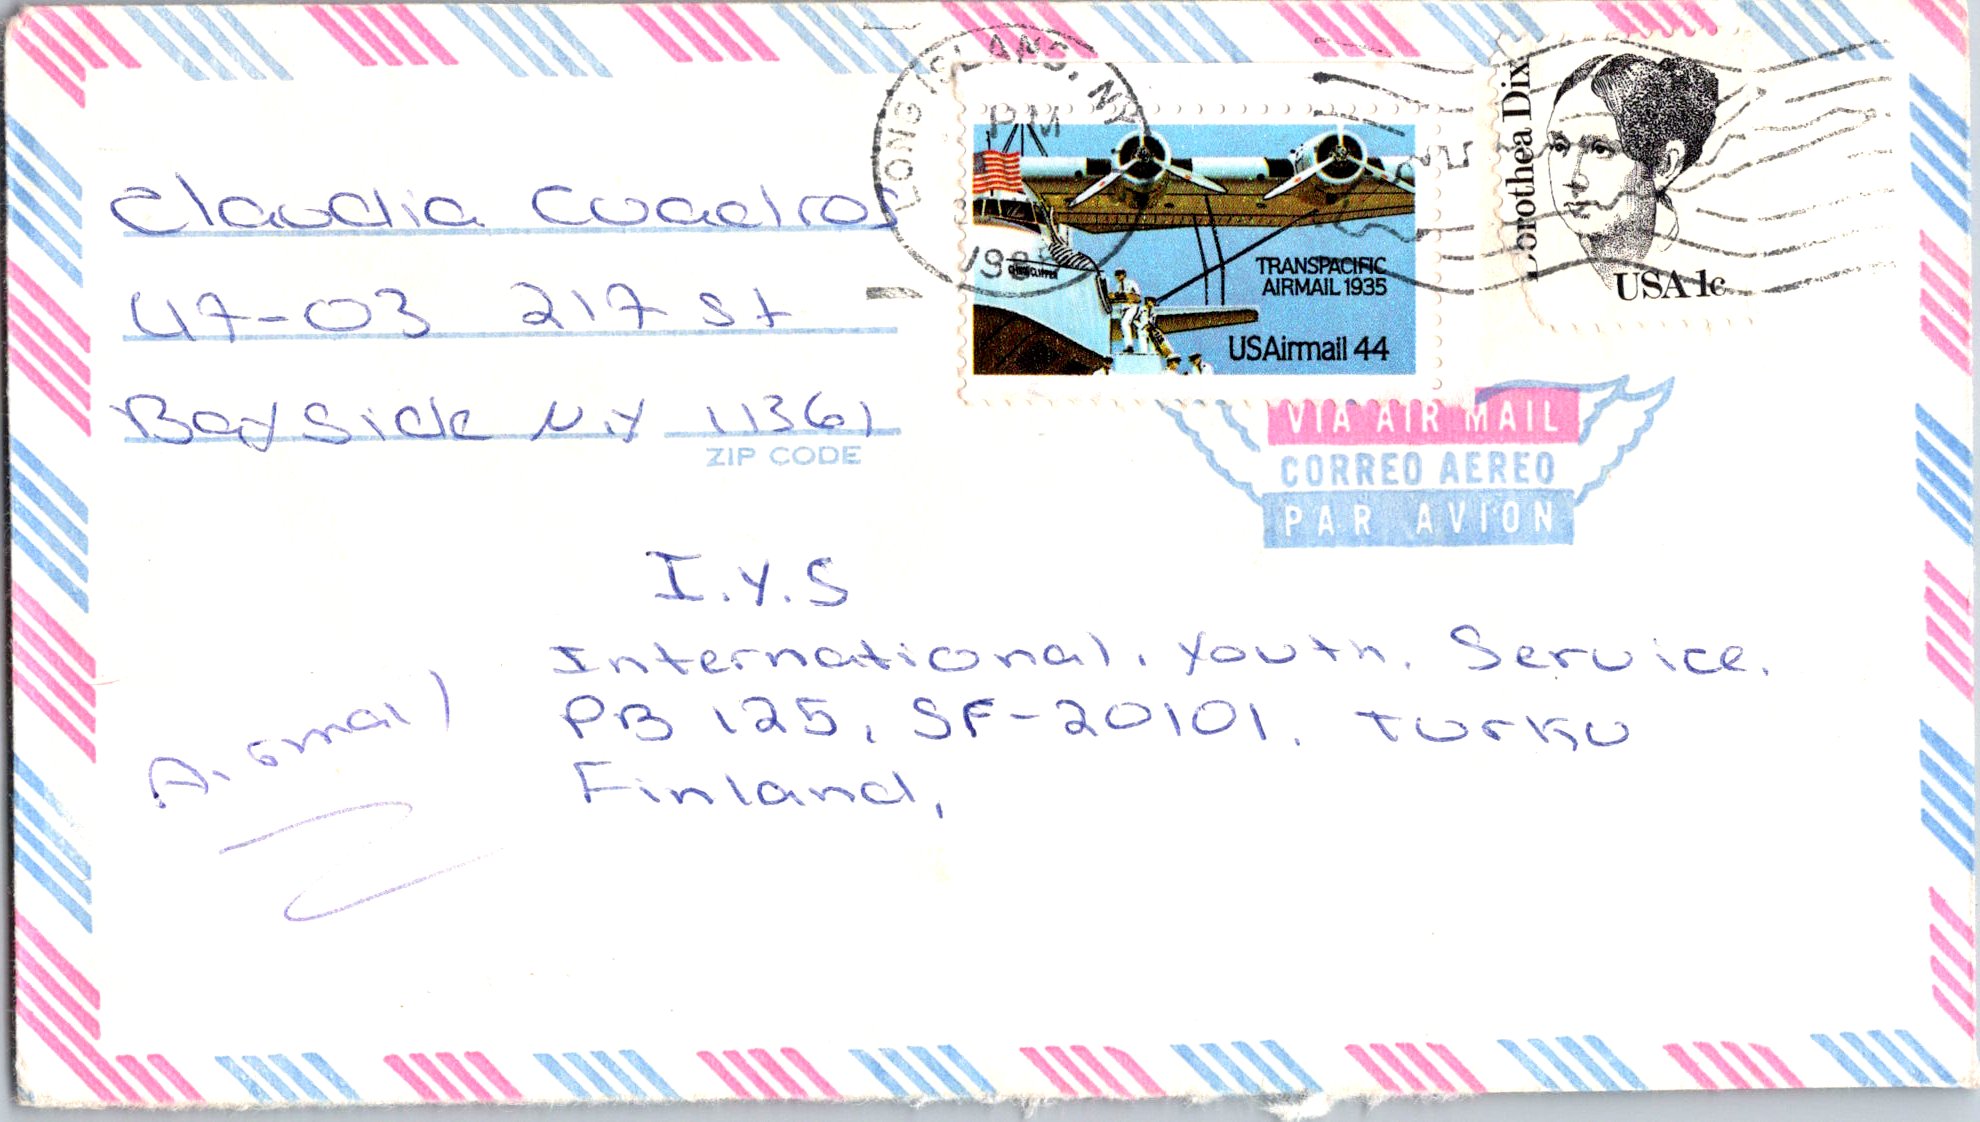 Claudia Cuadros
47-03 217 St
BaySide N.Y 11361
ZIP CODE
LONG ISLAND, NY
PM
CHINA CLIPPER
TRANSPACIFIC
AIRMAIL 1935
USAirmail 44
Dorothea Dix
USA 1c
VIA AIR MAIL
CORREO AEREO
PAR AVION
I.Y.S
International. Youth. Service.
PB 125, SF-20101. Turku
Finland,